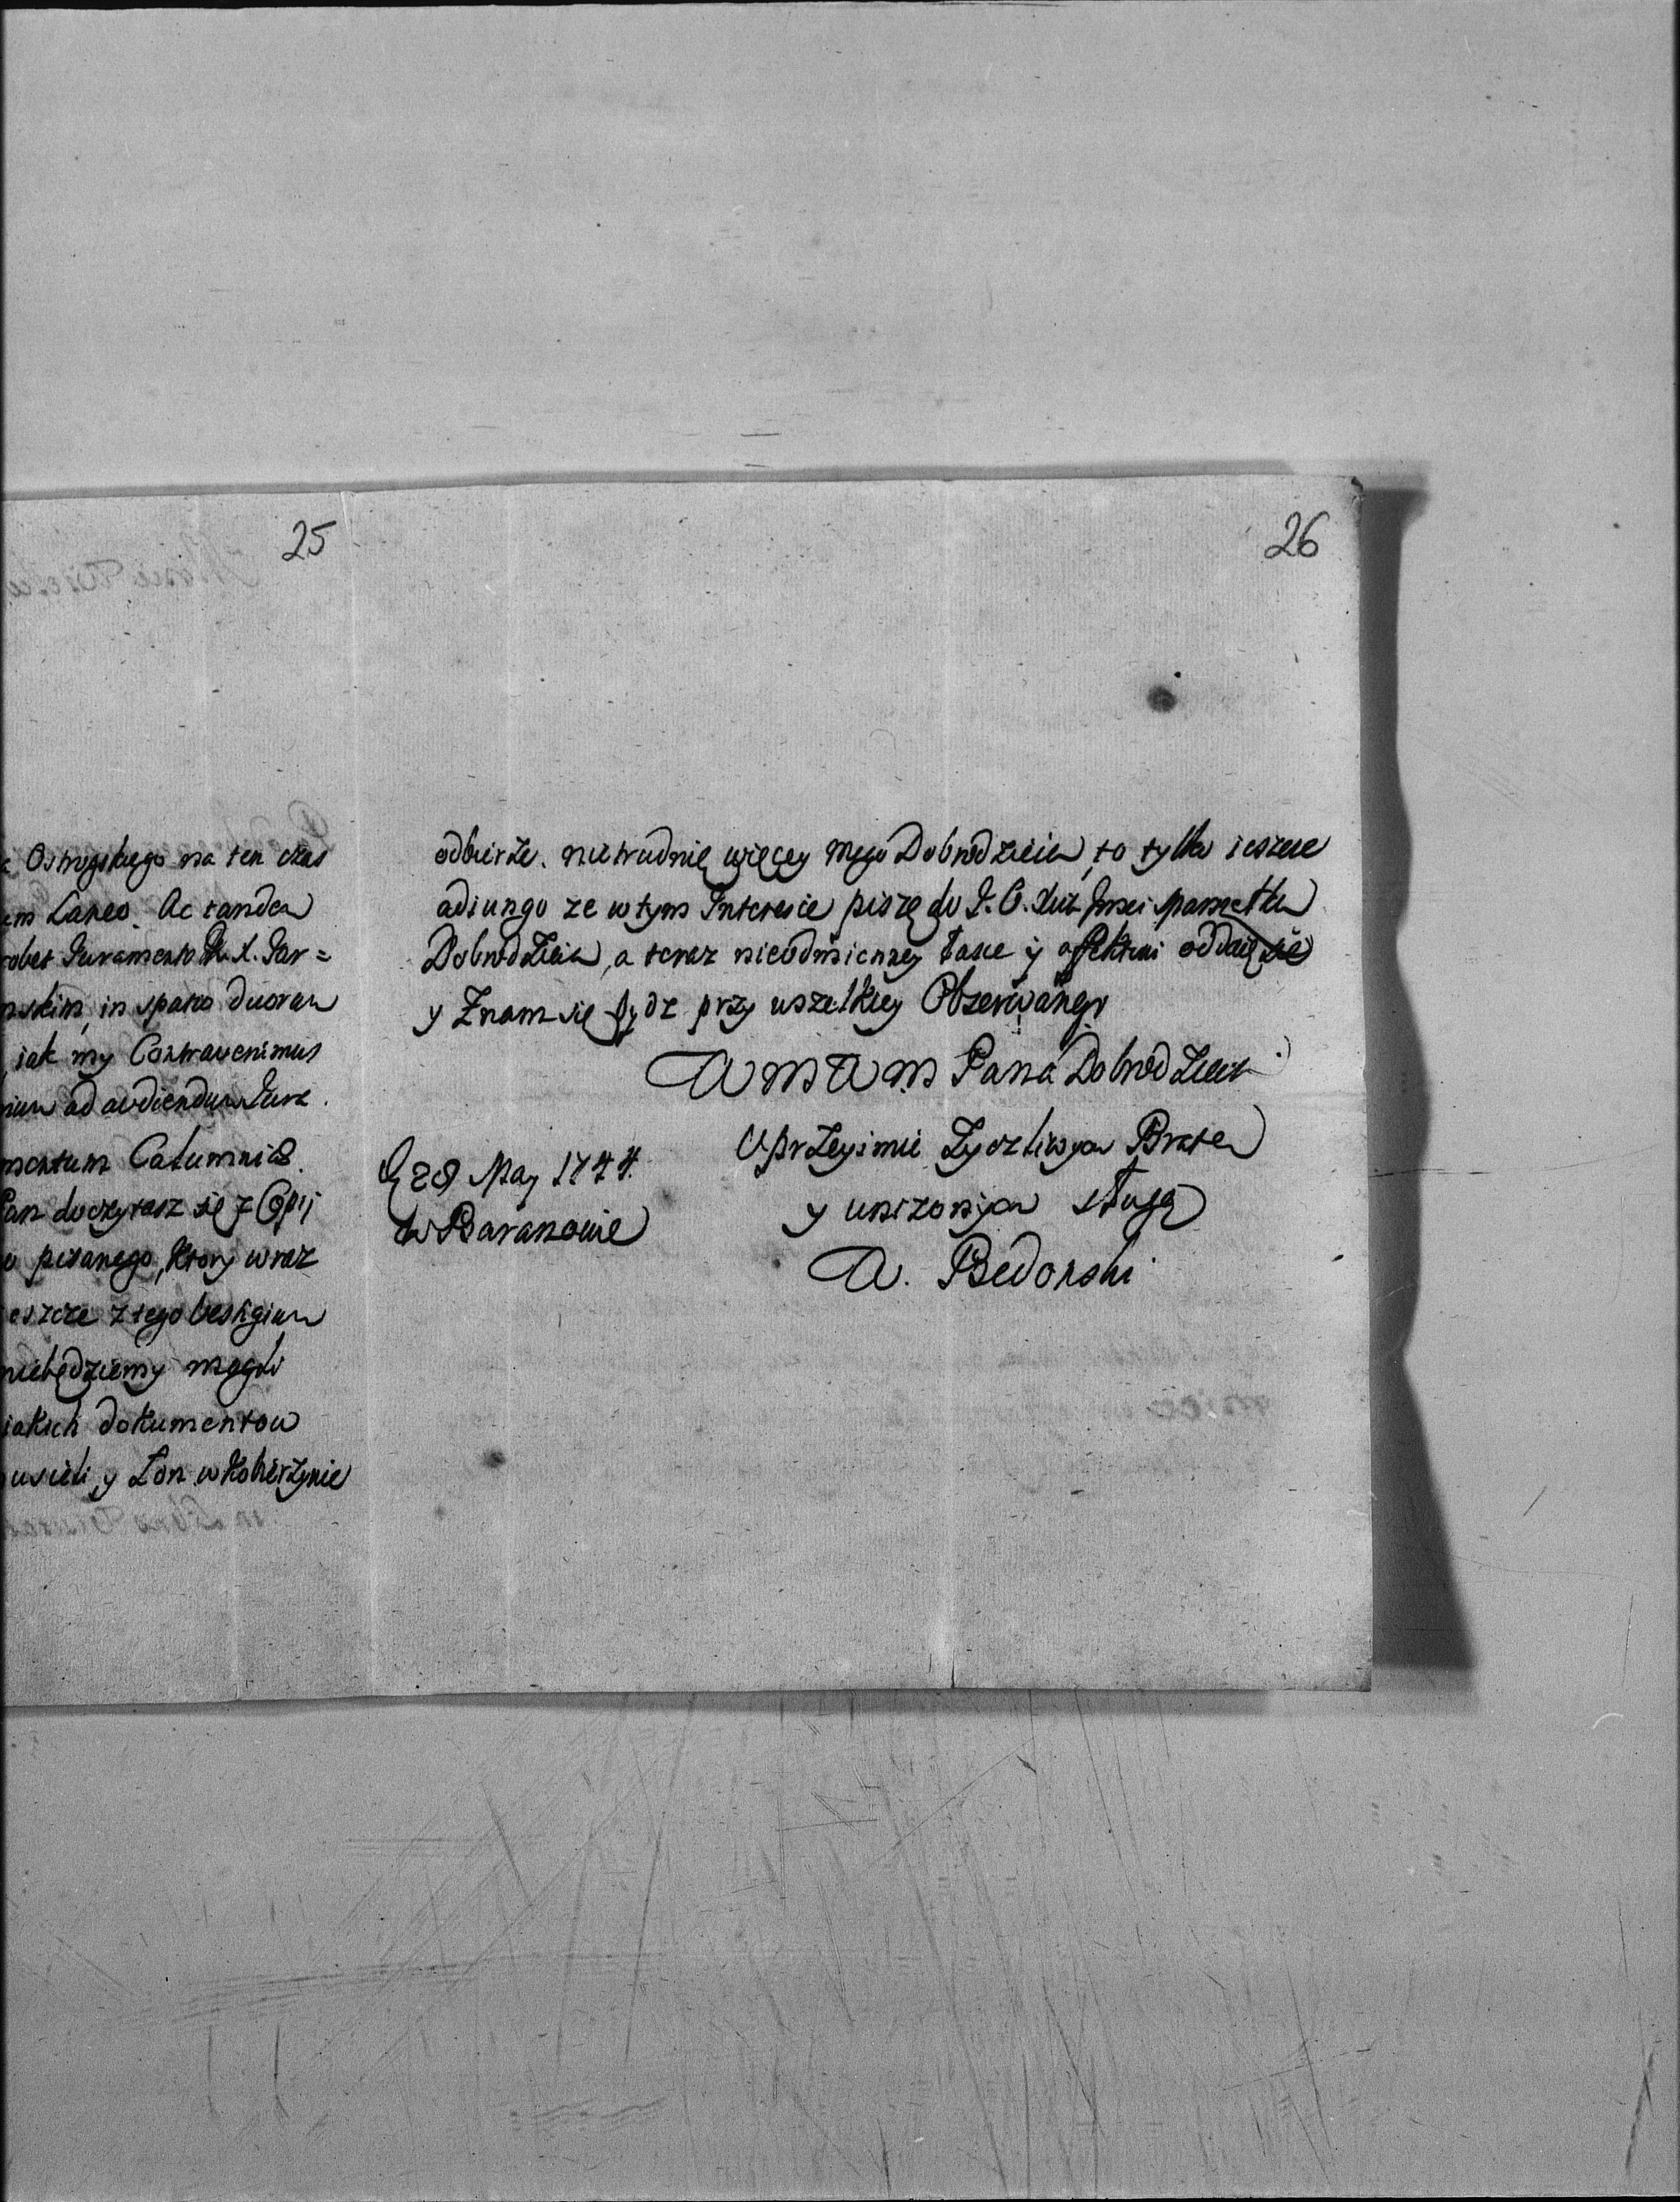 25
Ostrogskiego na ten czas
Laneo. Ac tandem
Juramento
in spatio duorum
iak my Contravenimus
ad audiendum
Calumniæ.
Pan doczytasz się z Copij
pisanego, ktory wraz
z tego vestigium
niebędziemy mogli
iakich dokumentow
y Lon w Kobierzynie
26
odbierze. nietrudnię więcey mego Dobrodzieia, to tylko ieszcze
adiungo ze w tym Interesie piszę do J. O. Xcia Jmci Marszałka
Dobrodzieia, a teraz nieodmienney łasce y affektowi oddaię się
y Znam się bydz przy wszelkiey Obserwancyi
WM WM Pana Dobrodzieia
Uprzeymie Zyczliwym Bratem
y unizonym sługą
A. Bedonski
D 28 May 1744.
w Baranowie